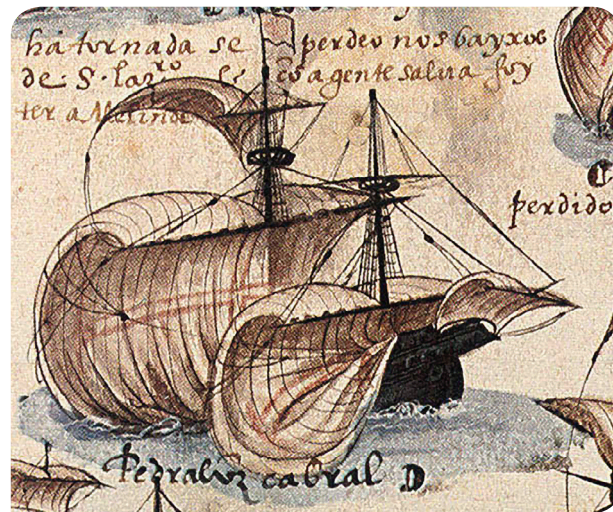 ha tornada se perdeo nos bayxos
de S. lazro cõ a gente salua foy
ter a Melinde
perdido
Pedraluz cabral D